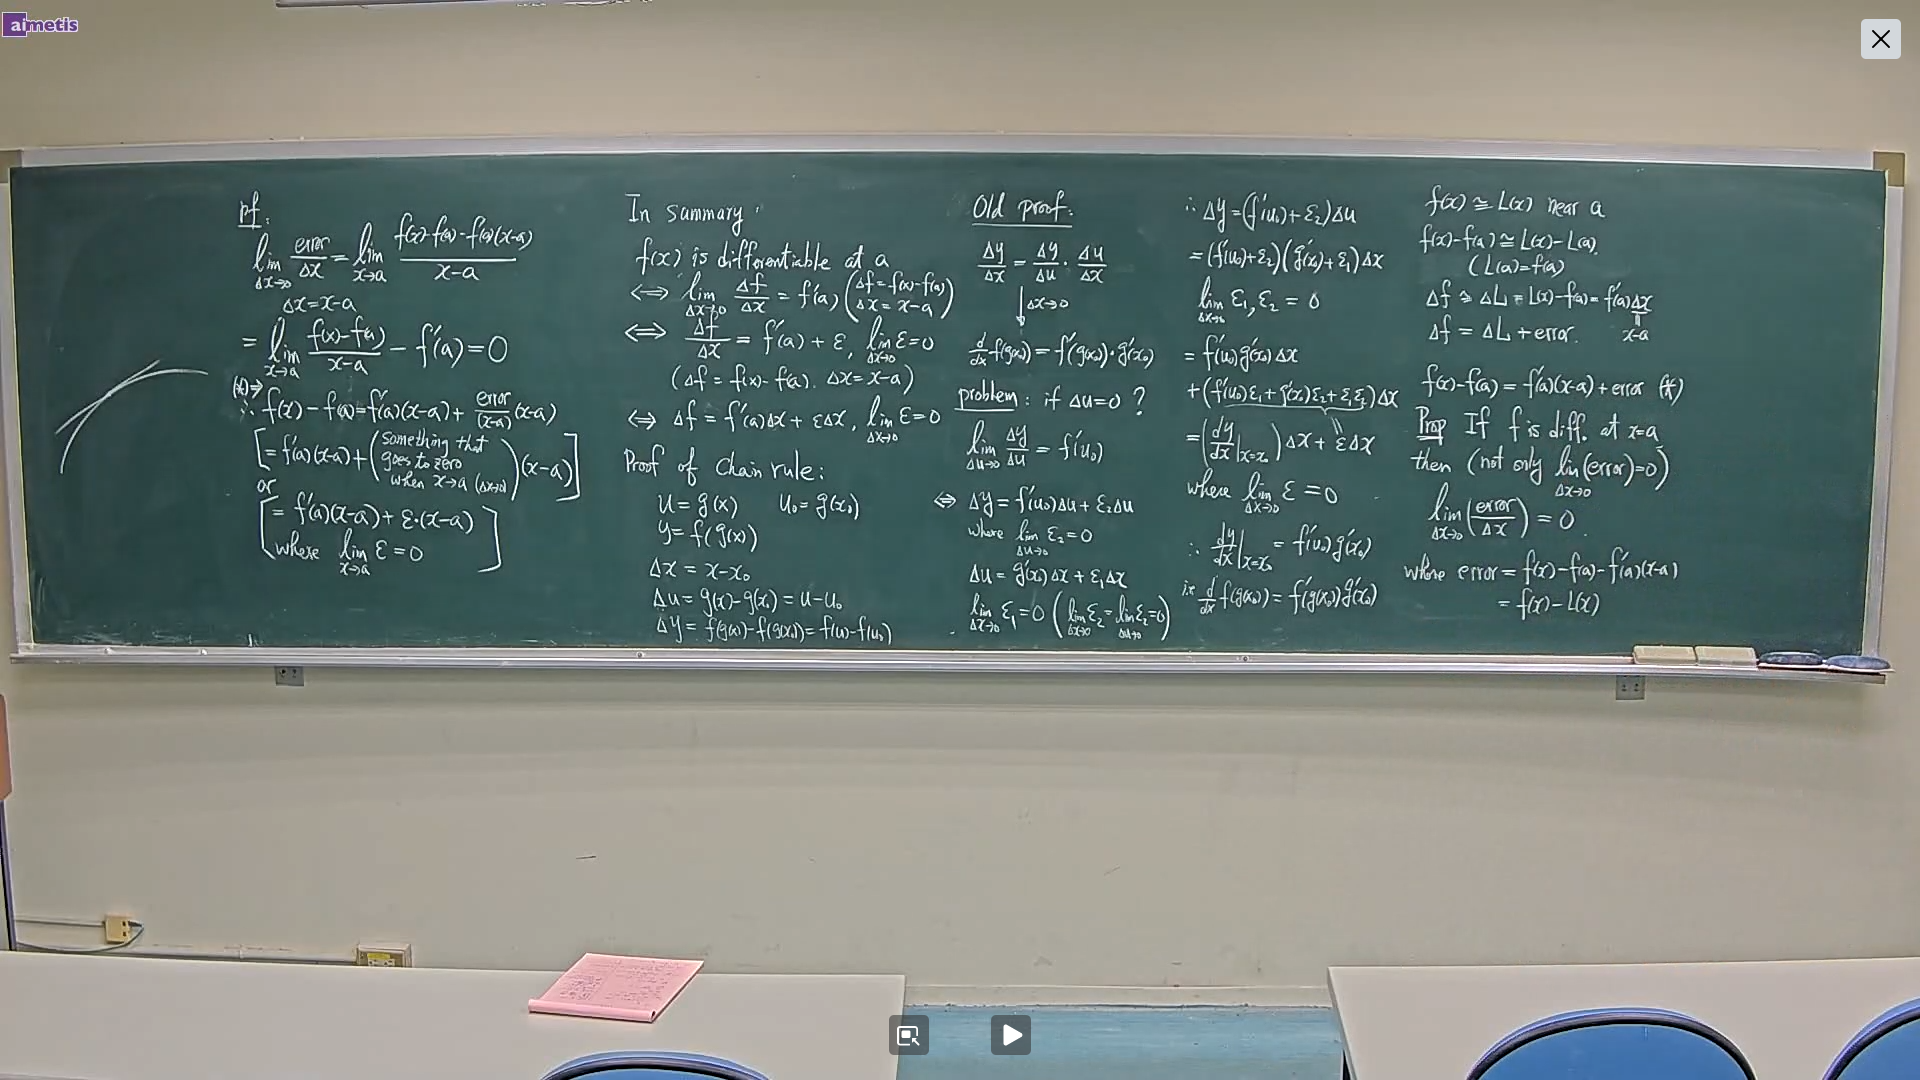 aimetis
pf:
lim_{Δx→0} error/Δx = lim_{x→a} (f(x)-f(a)-f'(a)(x-a))/(x-a)
Δx=x-a
= lim_{x→a} (f(x)-f(a))/(x-a) - f'(a)=0
(*)⇒
∴ f(x)-f(a)=f'(a)(x-a)+ error/(x-a) (x-a)
[= f'(a)(x-a)+(something that goes to zero when x→a (Δx→0))(x-a)]
or
[= f'(a)(x-a)+ ε·(x-a)
where lim_{x→a} ε=0]
In summary:
f(x) is differentiable at a
⟺ lim_{Δx→0} Δf/Δx = f'(a) (Δf=f(x)-f(a) Δx=x-a)
⟺ Δf/Δx = f'(a)+ε, lim_{Δx→0} ε=0
(Δf = f(x)-f(a). Δx=x-a)
⟺ Δf = f'(a)Δx+εΔx, lim_{Δx→0} ε=0
Proof of Chain rule:
u=g(x) u₀=g(x₀)
y=f(g(x))
Δx = x-x₀
Δu= g(x)-g(x₀) = u-u₀
Δy= f(g(x))-f(g(x₀))= f(u)-f(u₀)
Old proof:
Δy/Δx = Δy/Δu · Δu/Δx
↓Δx→0
d/dx f(g(x₀))= f'(g(x₀))·g'(x₀)
problem: if Δu=0 ?
lim_{Δu→0} Δy/Δu = f'(u₀)
⟺ Δy=f'(u₀)Δu+ε₂Δu
where lim_{Δu→0} ε₂=0
Δu= g'(x₀)Δx+ε₁Δx
lim_{Δx→0} ε₁=0 (lim_{Δx→0} ε₂=lim_{Δu→0} ε₂=0)
∴ Δy=(f'(u₀)+ε₂)Δu
=(f'(u₀)+ε₂)(g'(x₀)+ε₁)Δx
lim_{Δx→0} ε₁,ε₂ = 0
= f'(u₀)g'(x₀)Δx
+(f'(u₀)ε₁+g'(x₀)ε₂+ε₁ε₂)Δx
=(dy/dx|_{x=x₀})Δx+εΔx
where lim_{Δx→0} ε=0
∴ dy/dx|_{x=x₀} = f'(u₀)g'(x₀)
i.e d/dx f(g(x₀))= f'(g(x₀))g'(x₀)
f(x)≅L(x) near a
f(x)-f(a)≅L(x)-L(a).
(L(a)=f(a))
Δf≅ΔL=L(x)-f(a)=f'(a)Δx
x-a
Δf = ΔL+error.
f(x)-f(a)=f'(a)(x-a)+error (*)
Prop If f is diff. at x=a
then (not only lim_{Δx→0}(error)=0)
lim_{Δx→0}(error/Δx) = 0
where error= f(x)-f(a)-f'(a)(x-a)
= f(x)-L(x)